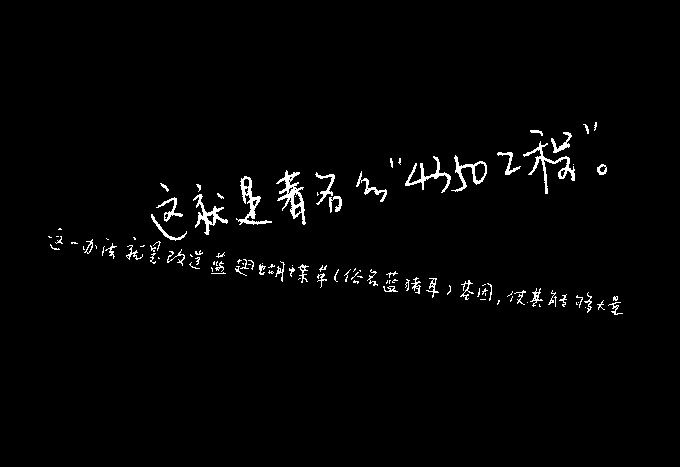 这就是著名的“4350工程”。
这一办法就是改造蓝翅蝴蝶草(俗名蓝猪耳)基因,使其能够大量